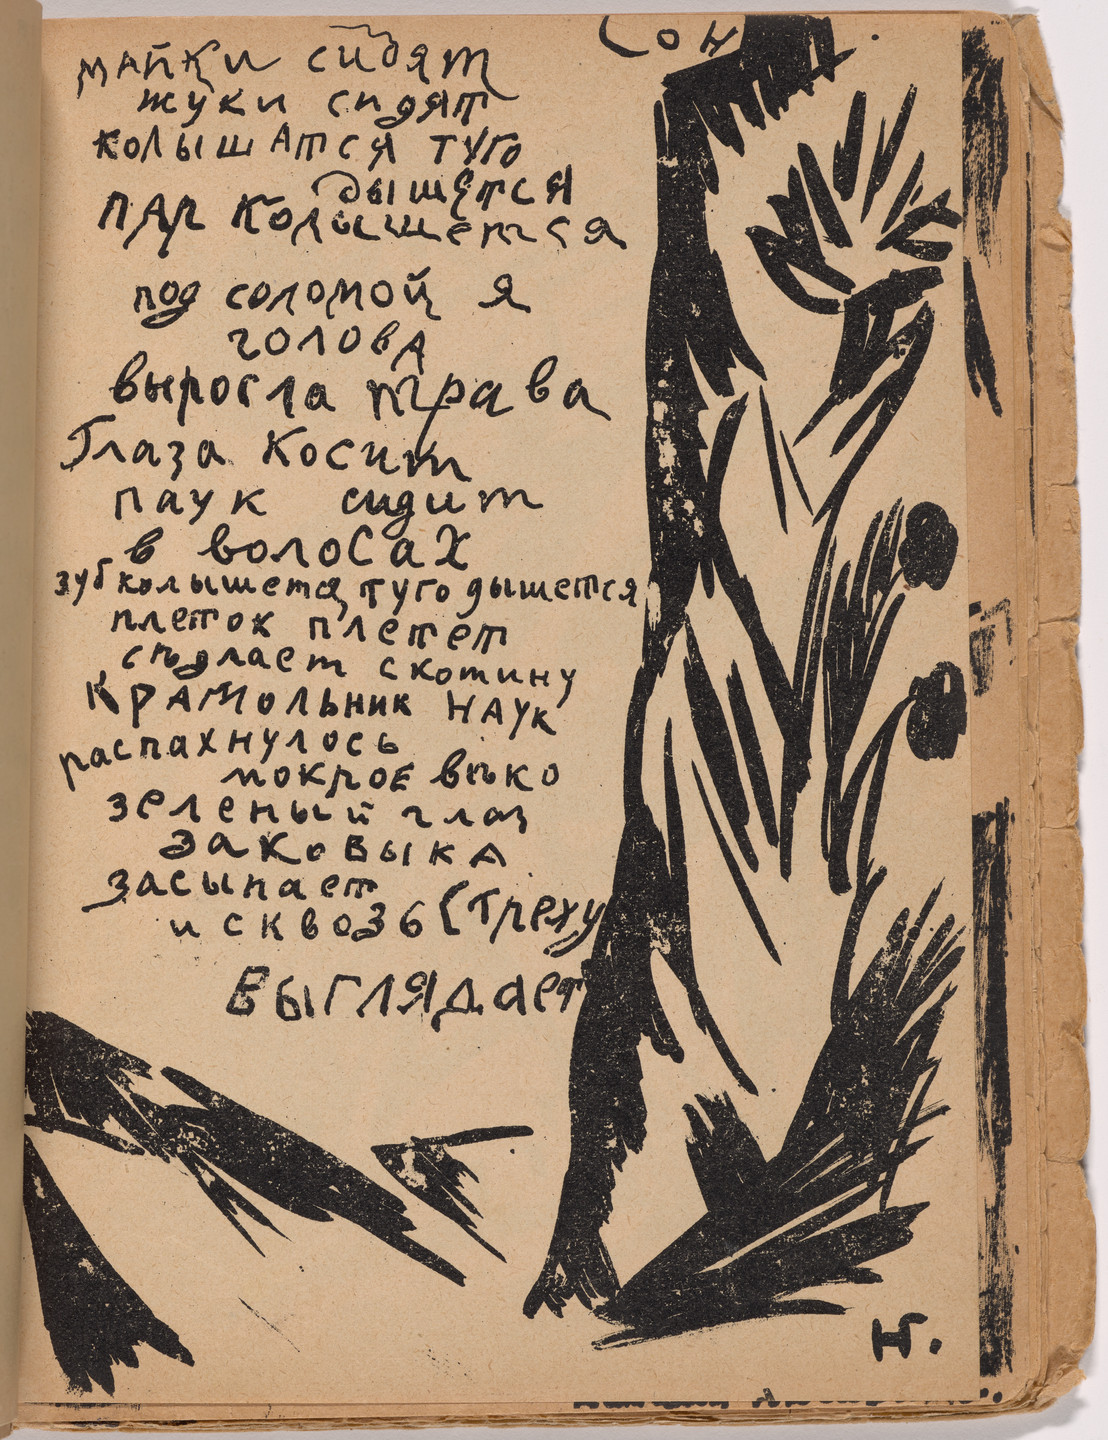 Сон
майки сидят
жуки сидят
колышатся туго
дышется
пар колышется
под соломой я
голова
выросла трава
Глаза косит
паук сидит
в волосах
зуб колышется туго дышется
плеток плетет
съдлает скотину
крамольник наук
распахнулось
мокрое вѣко
зеленый глаз
заковыка
засыпает
и сквозь (треху
выглядает
Н.